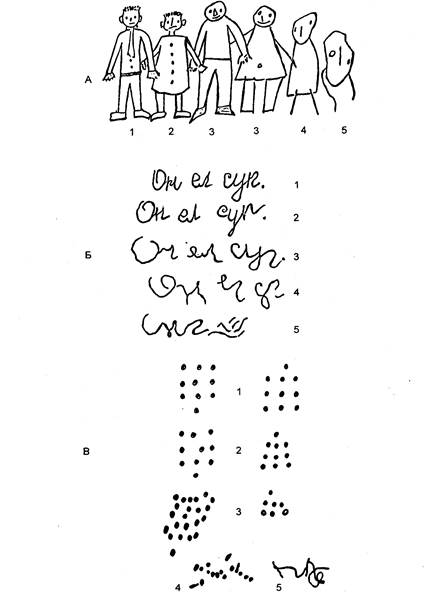 А
1 2 3 3 4 5
Он ел суп. 1
Он ел суп. 2
Б Он ел суп. 3
4
5
1
В 2
3
4 5